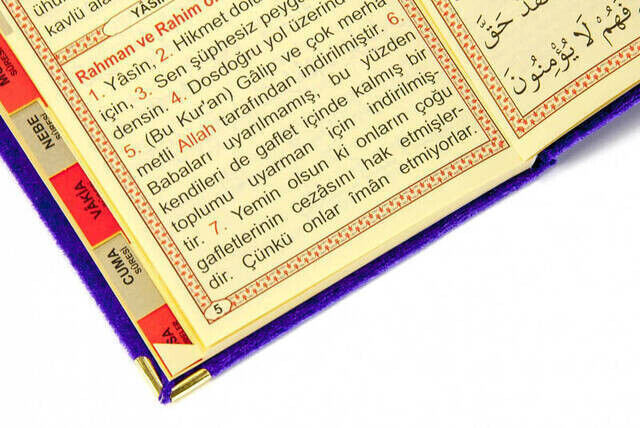 YÂSÎN
kavlü
Rahman ve Rahim
1. Yâsîn, 2. Hikmet
için, 3. Sen şüphesiz
densin. 4. Dosdoğru yol üzerinde
5. (Bu Kur'an) Gâlip ve çok merha-
metli Allah tarafından indirilmiştir. 6.
Babaları uyarılmamış, bu yüzden
kendileri de gaflet içinde kalmış bir
toplumu uyarman için indirilmiş-
tir. 7. Yemin olsun ki onların çoğu
gafletlerinin cezâsını hak etmişler-
dir. Çünkü onlar îmân etmiyorlar.
5
SÛRESİ
NEBE
SÛRESİ
VÂKIA
CUMA
SÛRESİ
حَقَّ
فَهُمْ لَا يُؤْمِنُونَ